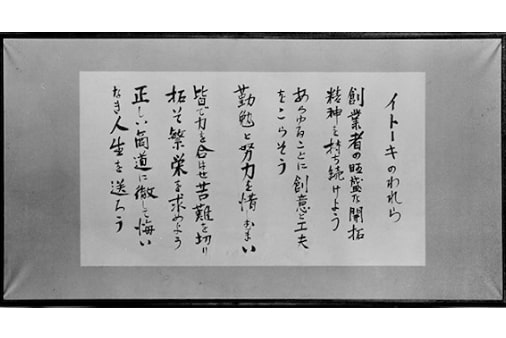 イトーキのわれら
創業者の旺盛な開拓
精神を持ち続けよう
あらゆることに創意と工夫
をこらそう
勤勉と努力を惜むまい
皆で力を合はせ苦難を切り
拓いて繁栄を求めよう
正しい商道に徹して悔い
なき人生を送ろう